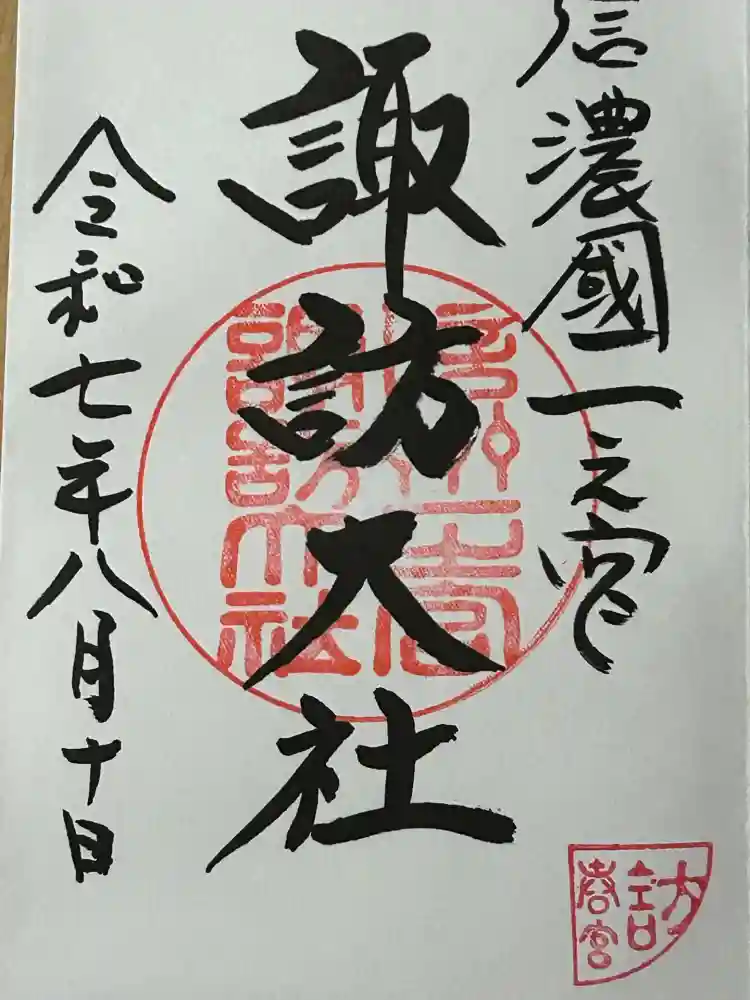 信濃國一之宮
諏訪大社
令和七年八月十日
諏訪大社
春宮